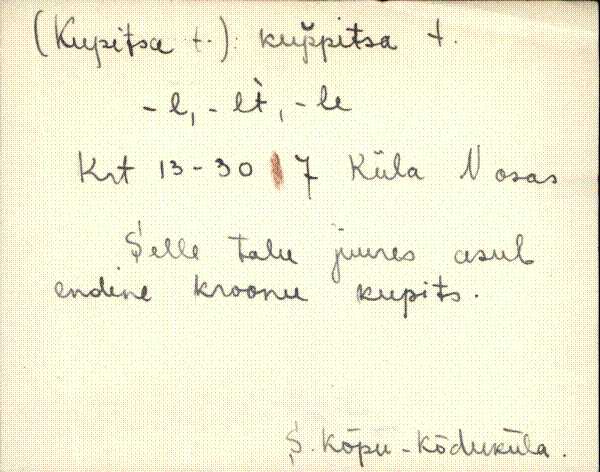 (Kupitsa t.) kup̆pitsa t.
-l, -lt̀, -le
Krt 13-30 7 Küla N osas
Selle talu juures asub
endine kroonu kupits.
S. Kõpu - Kõduküla.